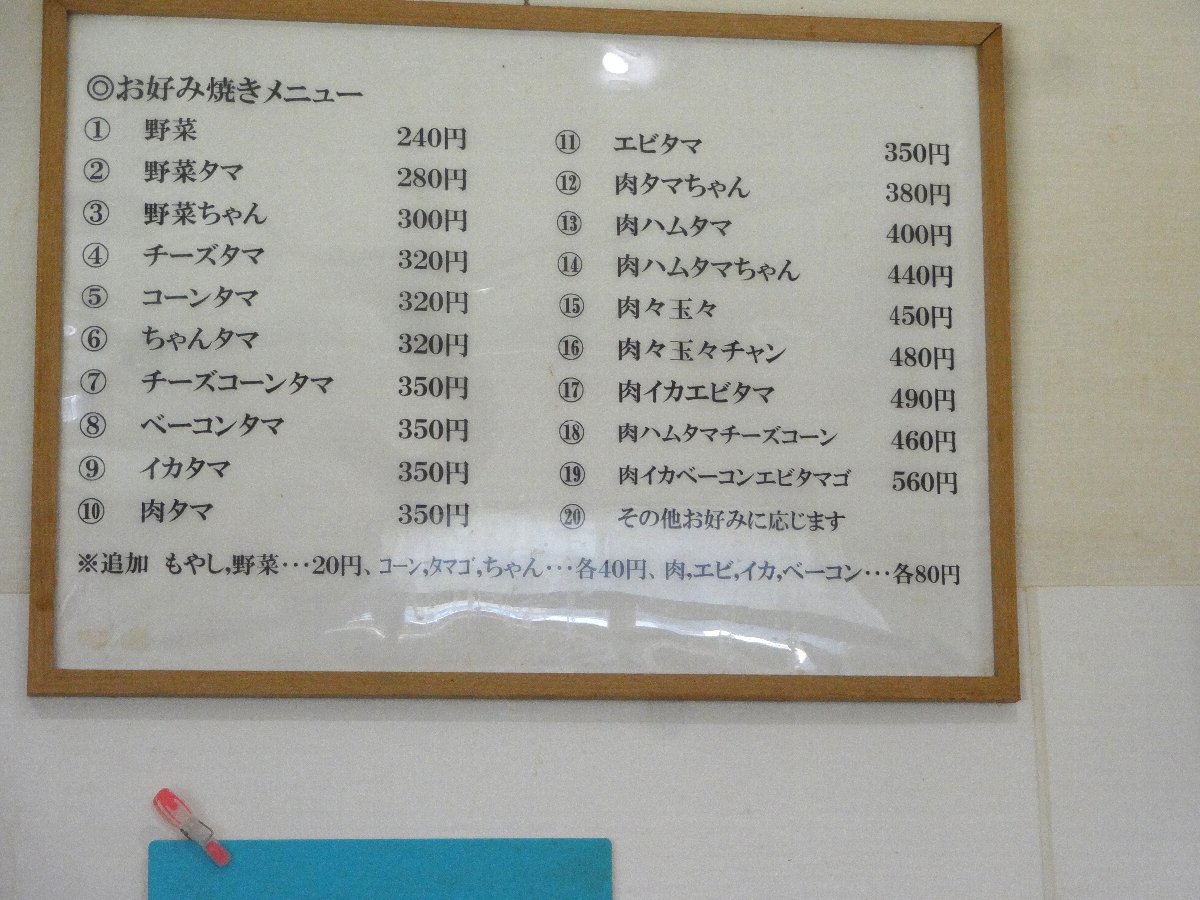 ◎お好み焼きメニュー
① 野菜 240円
② 野菜タマ 280円
③ 野菜ちゃん 300円
④ チーズタマ 320円
⑤ コーンタマ 320円
⑥ ちゃんタマ 320円
⑦ チーズコーンタマ 350円
⑧ ベーコンタマ 350円
⑨ イカタマ 350円
⑩ 肉タマ 350円
⑪ エビタマ 350円
⑫ 肉タマちゃん 380円
⑬ 肉ハムタマ 400円
⑭ 肉ハムタマちゃん 440円
⑮ 肉々玉々 450円
⑯ 肉々玉々チャン 480円
⑰ 肉イカエビタマ 490円
⑱ 肉ハムタマチーズコーン 460円
⑲ 肉イカベーコンエビタマゴ 560円
⑳ その他お好みに応じます
※追加 もやし,野菜･･･20円、コーン,タマゴ,ちゃん･･･各40円、肉,エビ,イカ,ベーコン･･･各80円